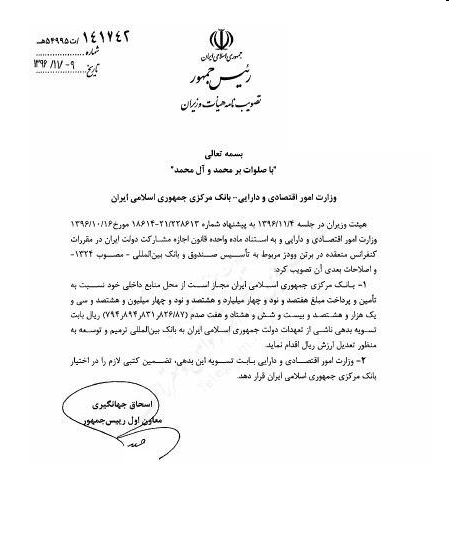 ۱۴۱۷۴۲/ت۵۴۹۹۵هـ
شماره
۱۳۹۶/۱۱/۰۹
تاریخ
جمهوری اسلامی ایران
رئیس جمهور
تصویب نامه هیأت وزیران
بسمه تعالی
"با صلوات بر محمد و آل محمد"
وزارت امور اقتصادی و دارایی - بانک مرکزی جمهوری اسلامی ایران
هیئت وزیران در جلسه ۱۳۹۶/۱۱/۴ به پیشنهاد شماره ۲۱/۲۲۸۶۱۳-۱۸۶۱۴ مورخ ۱۳۹۶/۱۰/۱۶
وزارت امور اقتصادی و دارایی و به استناد ماده واحده قانون اجازه مشارکت دولت ایران در مقررات
کنفرانس منعقده در برتن وودز مربوط به تأسیس صندوق و بانک بین‌المللی - مصوب ۱۳۲۴-
و اصلاحات بعدی آن تصویب کرد:
۱- بانک مرکزی جمهوری اسلامی ایران مجاز است از محل منابع داخلی خود نسبت به
تأمین و پرداخت مبلغ هفتصد و نود و چهار میلیارد و هشتصد و نود و چهار میلیون و هشتصد و سی و
یک هزار و هشتصد و بیست و شش و هشتاد و هفت صدم (۷۹۴٫۸۹۴٫۸۳۱٫۸۲۶/۸۷) ریال بابت
تسویه بدهی ناشی از تعهدات دولت جمهوری اسلامی ایران به بانک بین‌المللی ترمیم و توسعه به
منظور تعدیل ارزش ریال اقدام نماید.
۲- وزارت امور اقتصادی و دارایی بابت تسویه این بدهی، تضمین کتبی لازم را در اختیار
بانک مرکزی جمهوری اسلامی ایران قرار دهد.
اسحاق جهانگیری
معاون اول رییس‌جمهور